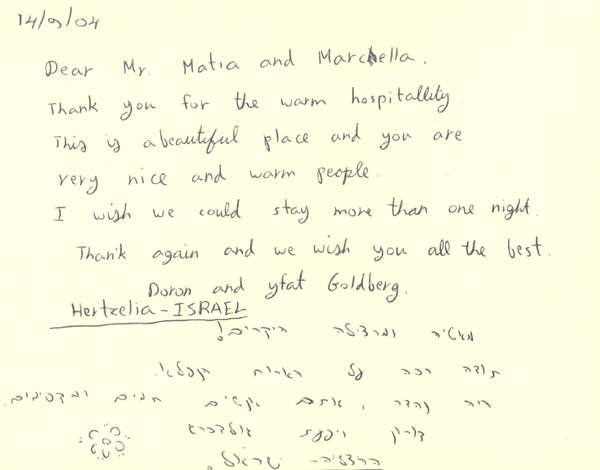 14/9/04
Dear Mr. Matia and Marchella.
Thank you for the warm hospitallity
This is a beautiful place and you are
very nice and warm people.
I wish we could stay more than one night.
Thank again and we wish you all the best.
Doron and yfat Goldberg.
Hertzelia - ISRAEL
ומרצ'לה היקרים!
תודה רבה על הארוח
היה נהדר, אתם חמים
דורון ויפעת גולדברג
הרצליה - ישראל.